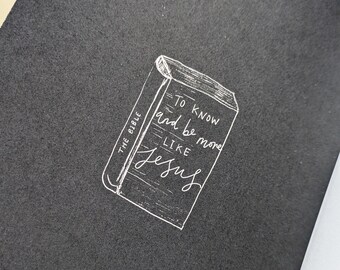 THE BIBLE
TO KNOW
and be more
LIKE
Jesus